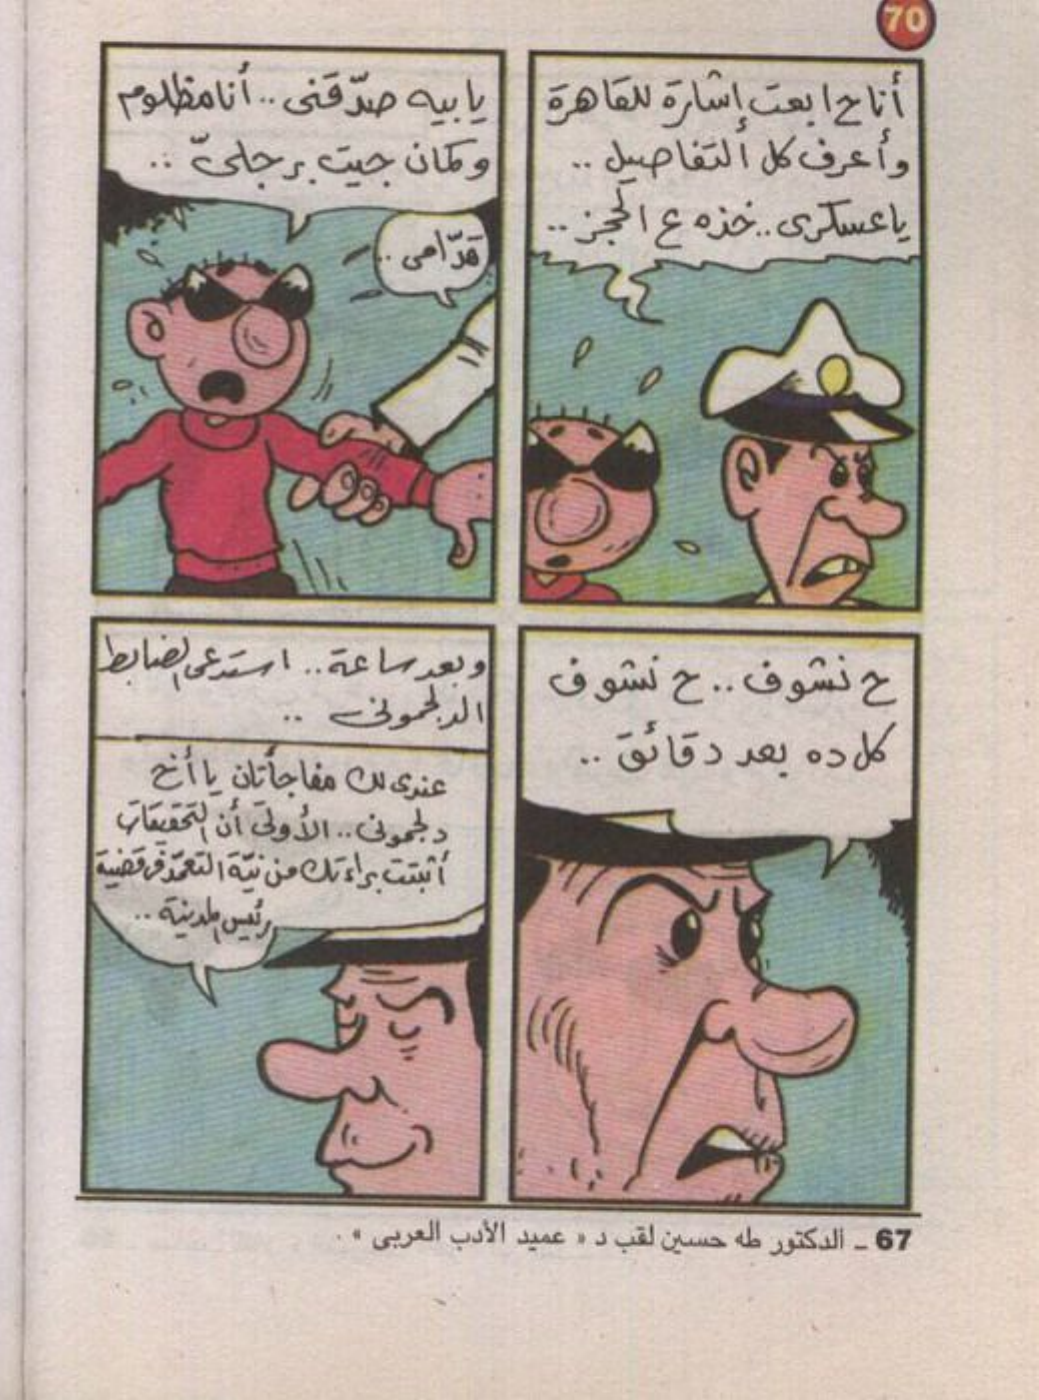 70
أنا ح ابعت إشارة للقاهرة
وأعرف كل التفاصيل ..
يا عسكرى .. خذه ع الحجز ..
يا بيه صدّقنى .. أنا مظلوم
وكمان جيت برجلىّ ..
قدّامى ..
ح نشوف .. ح نشوف
كل ده بعد دقائق ..
وبعد ساعة .. استدعى الضابط
الدلجمونى ..
عندى لك مفاجأتان يا أخ
دلجمونى .. الأولى أن التحقيقات
أثبتت براءتك من نيّة التعمّد فى قضية
رئيس المدينة ..
67 ـ الدكتور طه حسين لقب د « عميد الأدب العربى » .